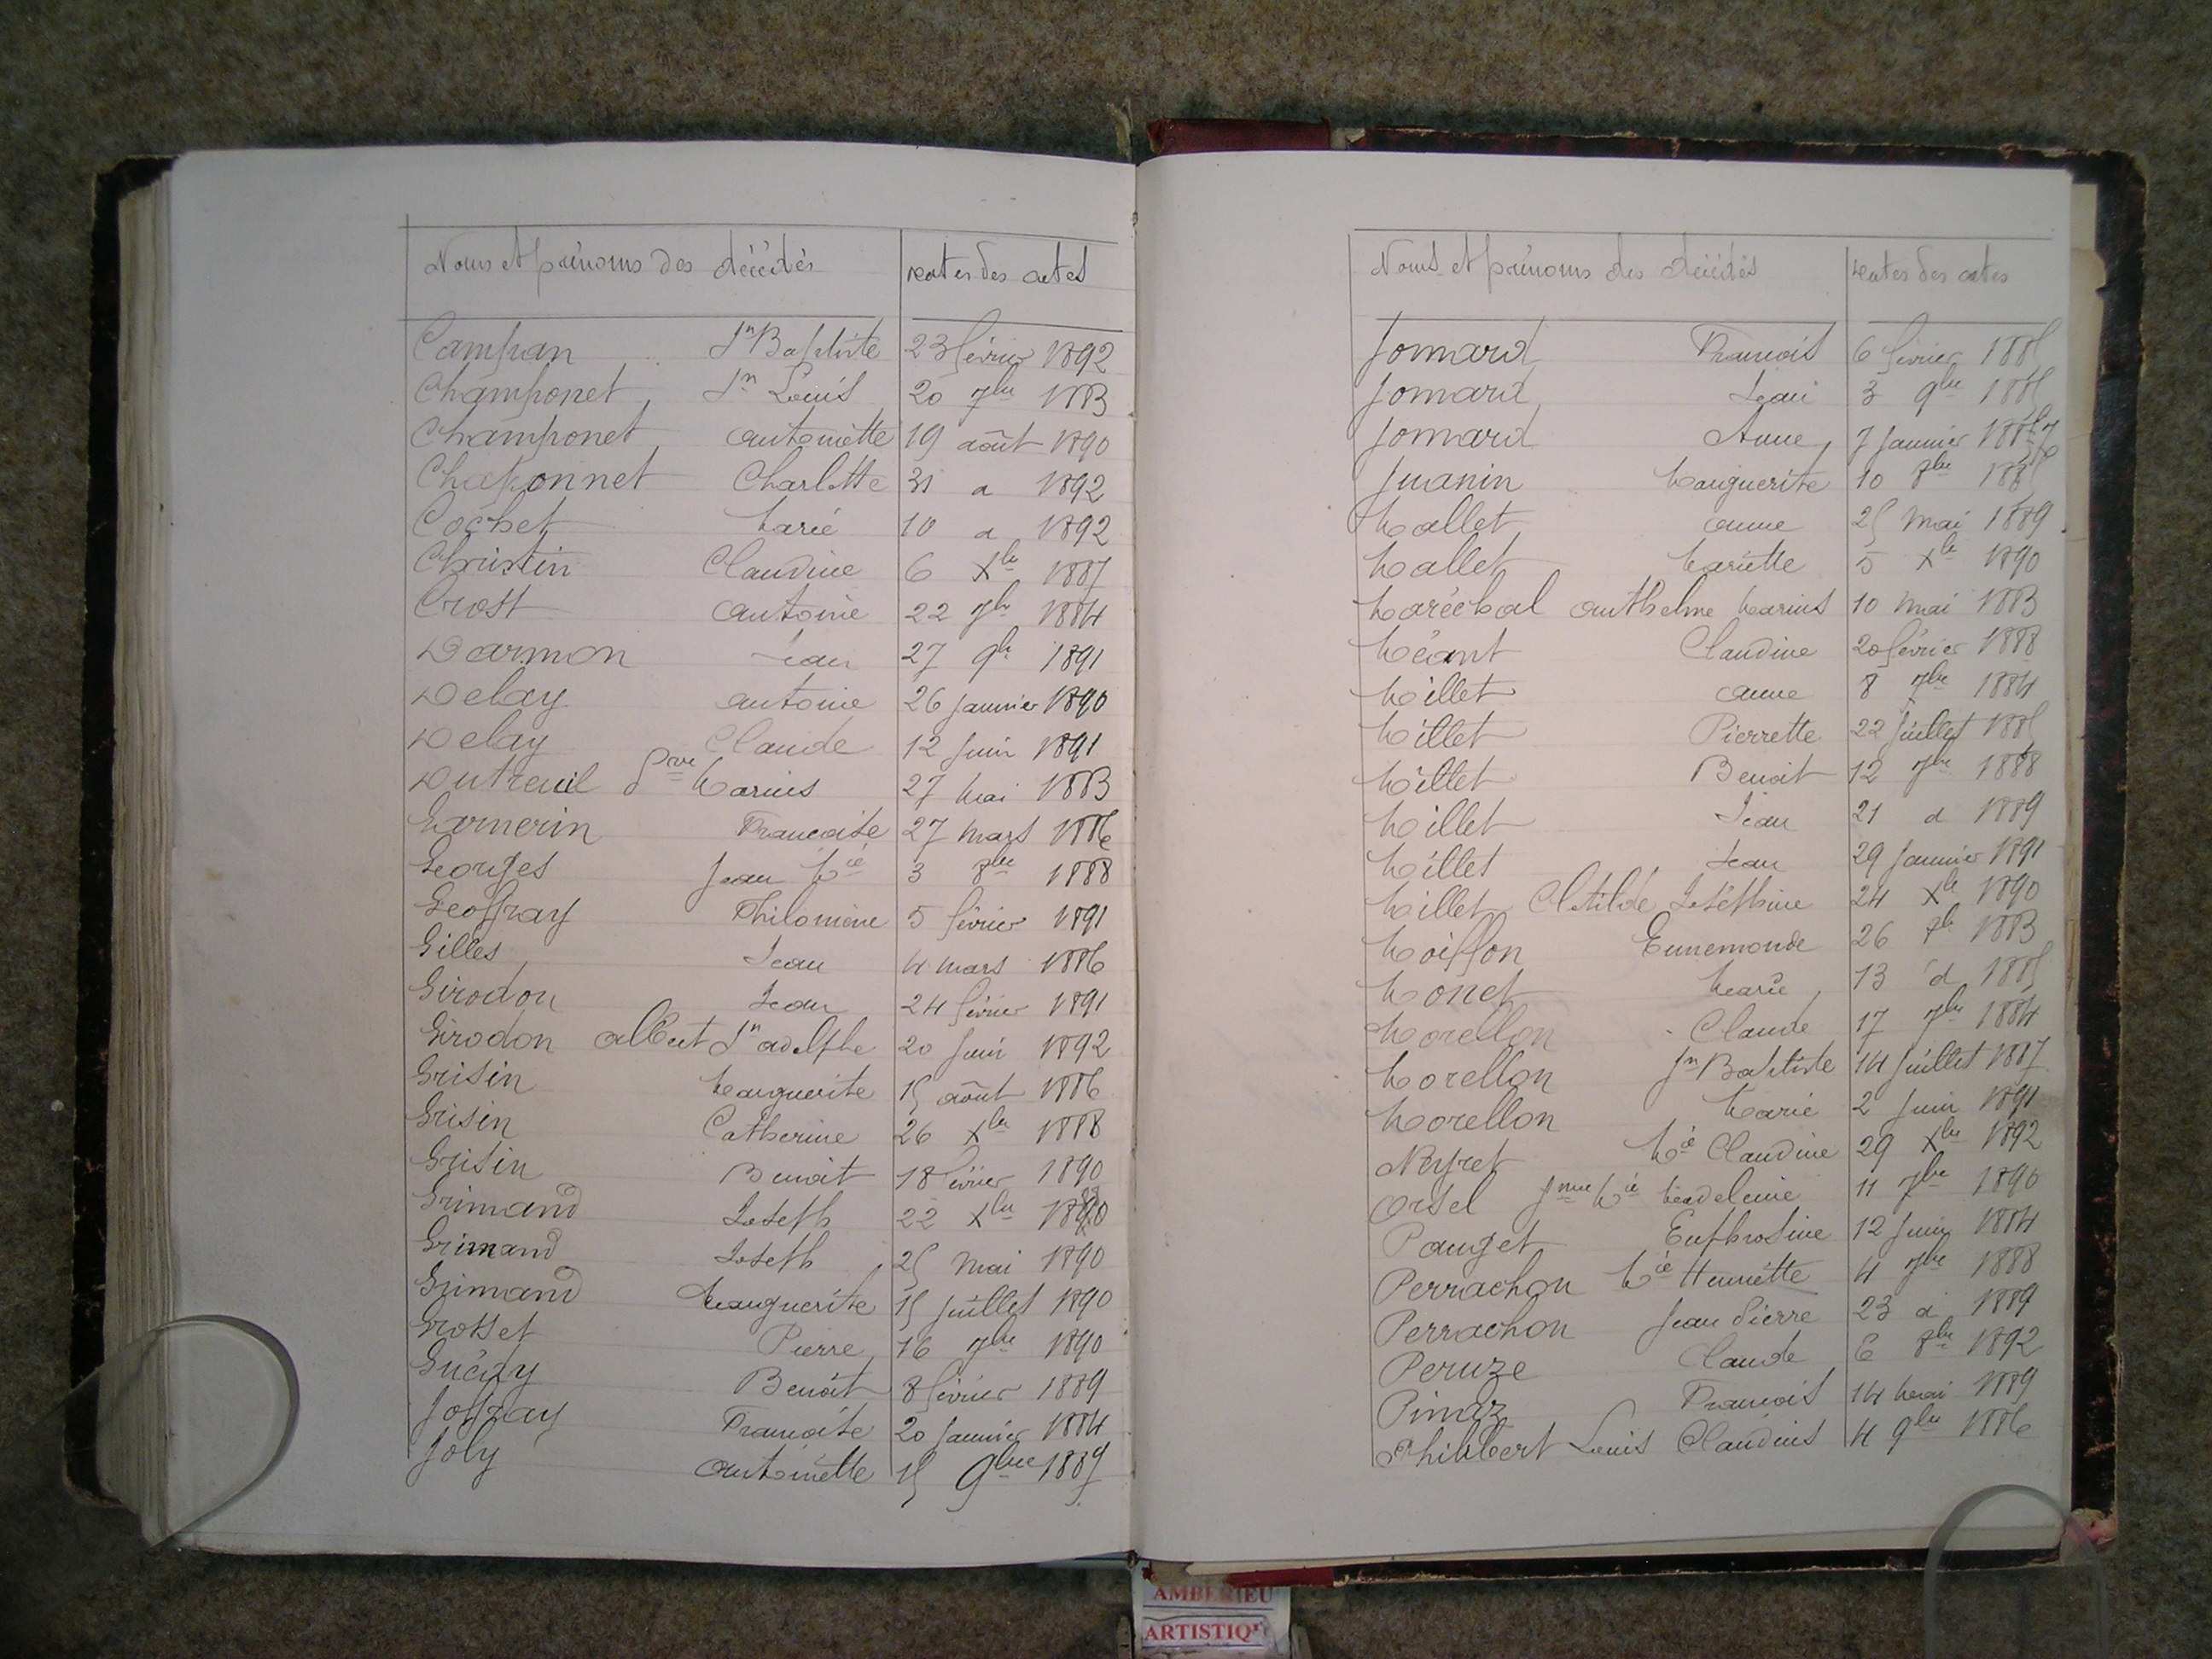 Noms et prénoms des décédés dates des actes
Campan Jn Baptiste 23 février 1892
Champonet Jn Louis 20 7bre 1883
Champonet antoinette 19 août 1890
Chaponnet Charlotte 31 d 1892
Cochet Marie 10 d 1892
Christin Claudine 6 Xbre 1887
Crost antoine 22 7bre 1884
Darmon Jean 27 9bre 1891
Delay antoine 26 janvier 1890
Delay Claude 12 juin 1891
Dutreuil Marius 27 Mai 1883
Garnerin Francoise 27 mars 1886
Georges Jean Mie 3 8bre 1888
Geoffray Philomène 5 février 1891
Gilles Jean 4 mars 1886
Girodon Jean 24 février 1891
Girodon albert Jn adolphe 20 juin 1892
Grisin Marguerite 15 août 1886
Grisin Catherine 26 Xbre 1888
Grisin Benoit 18 février 1890
Grimand Joseph 22 Xbre
Grimand Joseph 25 mai 1890
Grimand Marguerite 15 juillet 1890
Grosset Pierre 16 7bre 1890
Benoit 8 février 1889
Joffray Francoise 20 janvier 1884
Joly antoinette 15 9bre
Noms et prénoms des décédés dates des actes
Jommard Francois 6 février 1885
Jomard Jean 3 9bre 1885
Jomard Anne 7 janvier
Juanin Marguerite 10 8bre
Mallet anne 25 mai 1889
Mallet Mariette 5 Xbre 1890
Maréchal anthelme Marius 10 mai 1883
Méant Claudine 20 février 1888
Millet anne 8 7bre 1884
Millet Pierrette 22 juillet 1885
Millet Benoit 12 7bre 1888
Millet Jean 21 d 1889
Millet Jean 29 janvier 1891
Millet Clotilde Joséphine 24 Xbre 1890
Moiffon Ennemonde 26 1883
Monet Marie 13 d 1885
Morellon Claude 17 7bre 1884
Morellon Jn Baptiste 14 juillet 1887
Morellon Marie 2 juin 1891
Neyret Mie Claudine 29 Xbre 1892
Orsel Jnne Mie Madeleine 11 7bre 1890
Pauget Euphrosine 12 juin 1884
Perrachon Mie Henriette 4 7bre 1888
Perrachon Jean Pierre 23 d 1889
Peruze Claude 6 8bre 1892
Pinaz Francois 14 Mai 1889
Philibert Louis Claudius 4 9bre 1886
AMBERIEU
ARTISTIQ